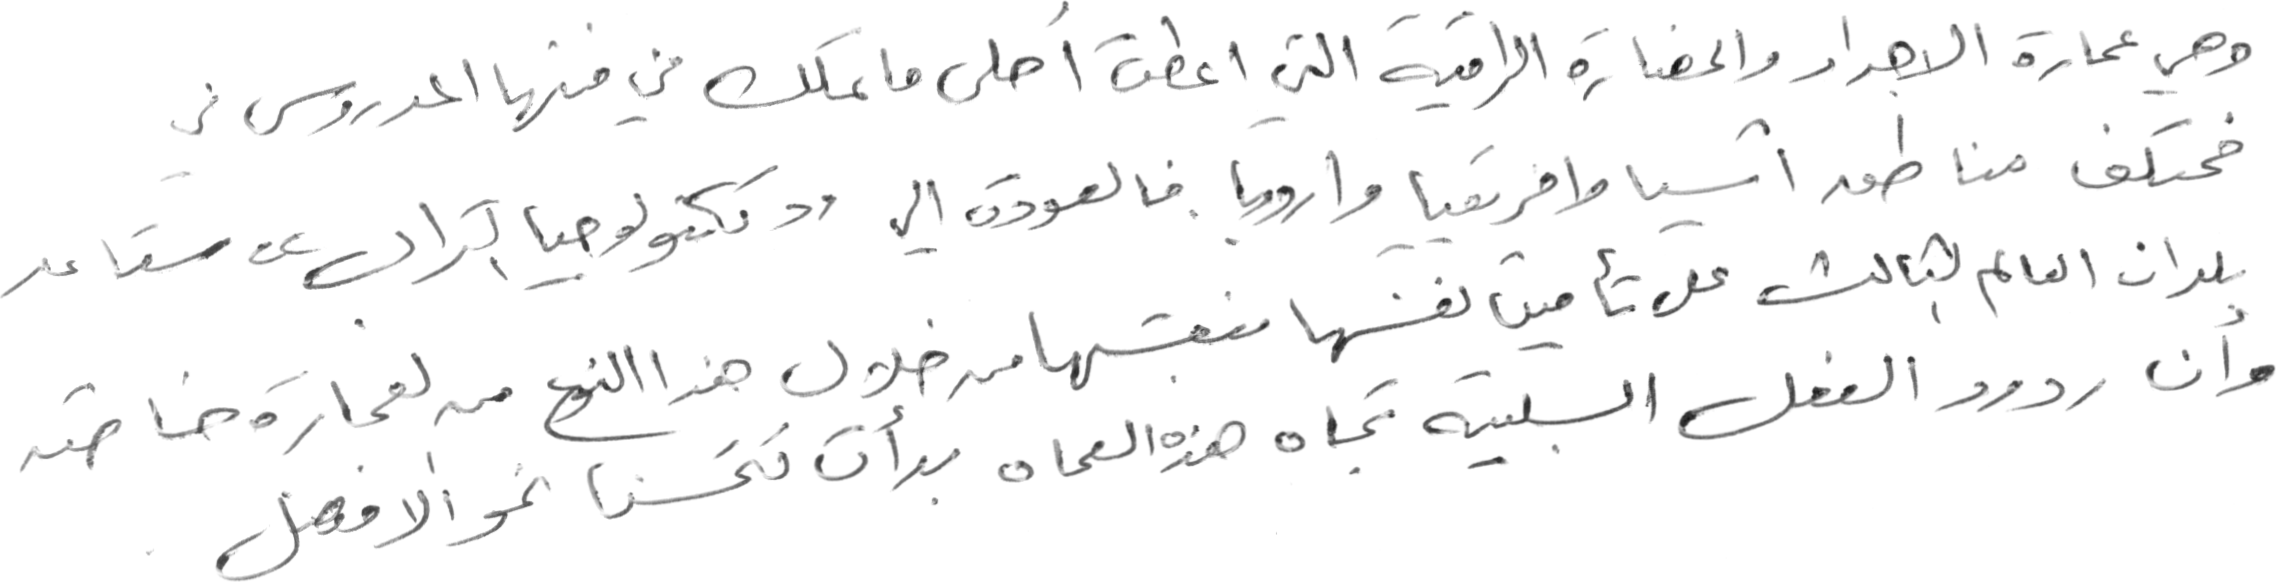 وهي عمارة الاجداد والحضارة الراقية التي اعطت أحلى ما تملك من فنها المدروس في
مختلف مناطق آسيا وافريقيا واروبا. فالعودة الى "تكنولوجيا التراب" ستساعد
بلدان العالم الثالث على تأمين نفسها بنفسها من خلال هذا النوع من العمارة خاصة
وأن ردود الفعل السلبية تجاه هذه العماره بدأت تتحسن نحو الافضل.